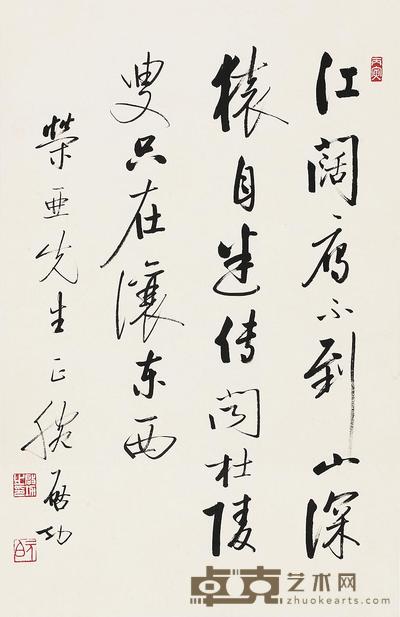 江闊雁不到山深
猿自迷傳聞杜陵
叟只在瀼東西
榮亞先生正腕 啟功
卓克艺术网
www.zhuokearts.com